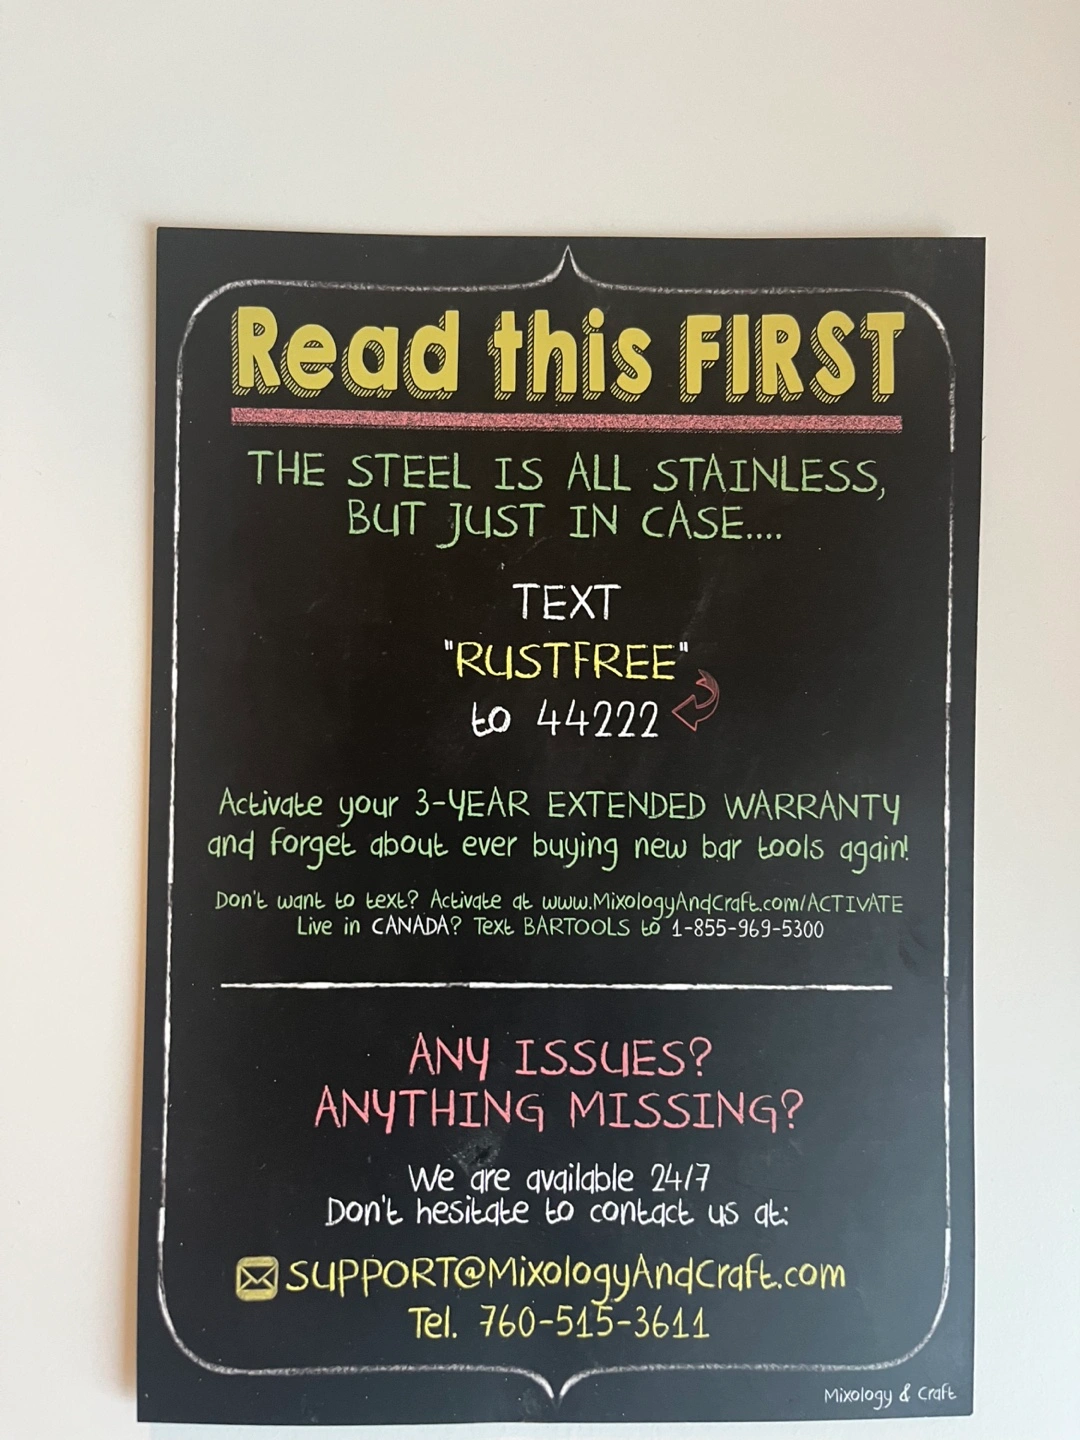 Read this FIRST
THE STEEL IS ALL STAINLESS,
BUT JUST IN CASE....
TEXT
"RUSTFREE"
to 44222
Activate your 3-YEAR EXTENDED WARRANTY
and forget about ever buying new bar tools again!
Don't want to text? Activate at www.MixologyAndCraft.com/ACTIVATE
Live in CANADA? Text BARTOOLS to 1-855-969-5300
ANY ISSUES?
ANYTHING MISSING?
We are available 24/7
Don't hesitate to contact us at:
SUPPORT@MixologyAndCraft.com
Tel. 760-515-3611
Mixology & Craft